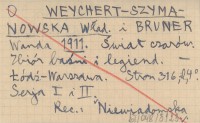 WEYCHERT-SZYMA-
NOWSKA Wład. i BRUNER
Wanda 1911. Świat czarów.
Zbiór baśni i legend. —
Łódź-Warszawa. Stron 316,
Serja I i II.
Rec.: Niewiadomska